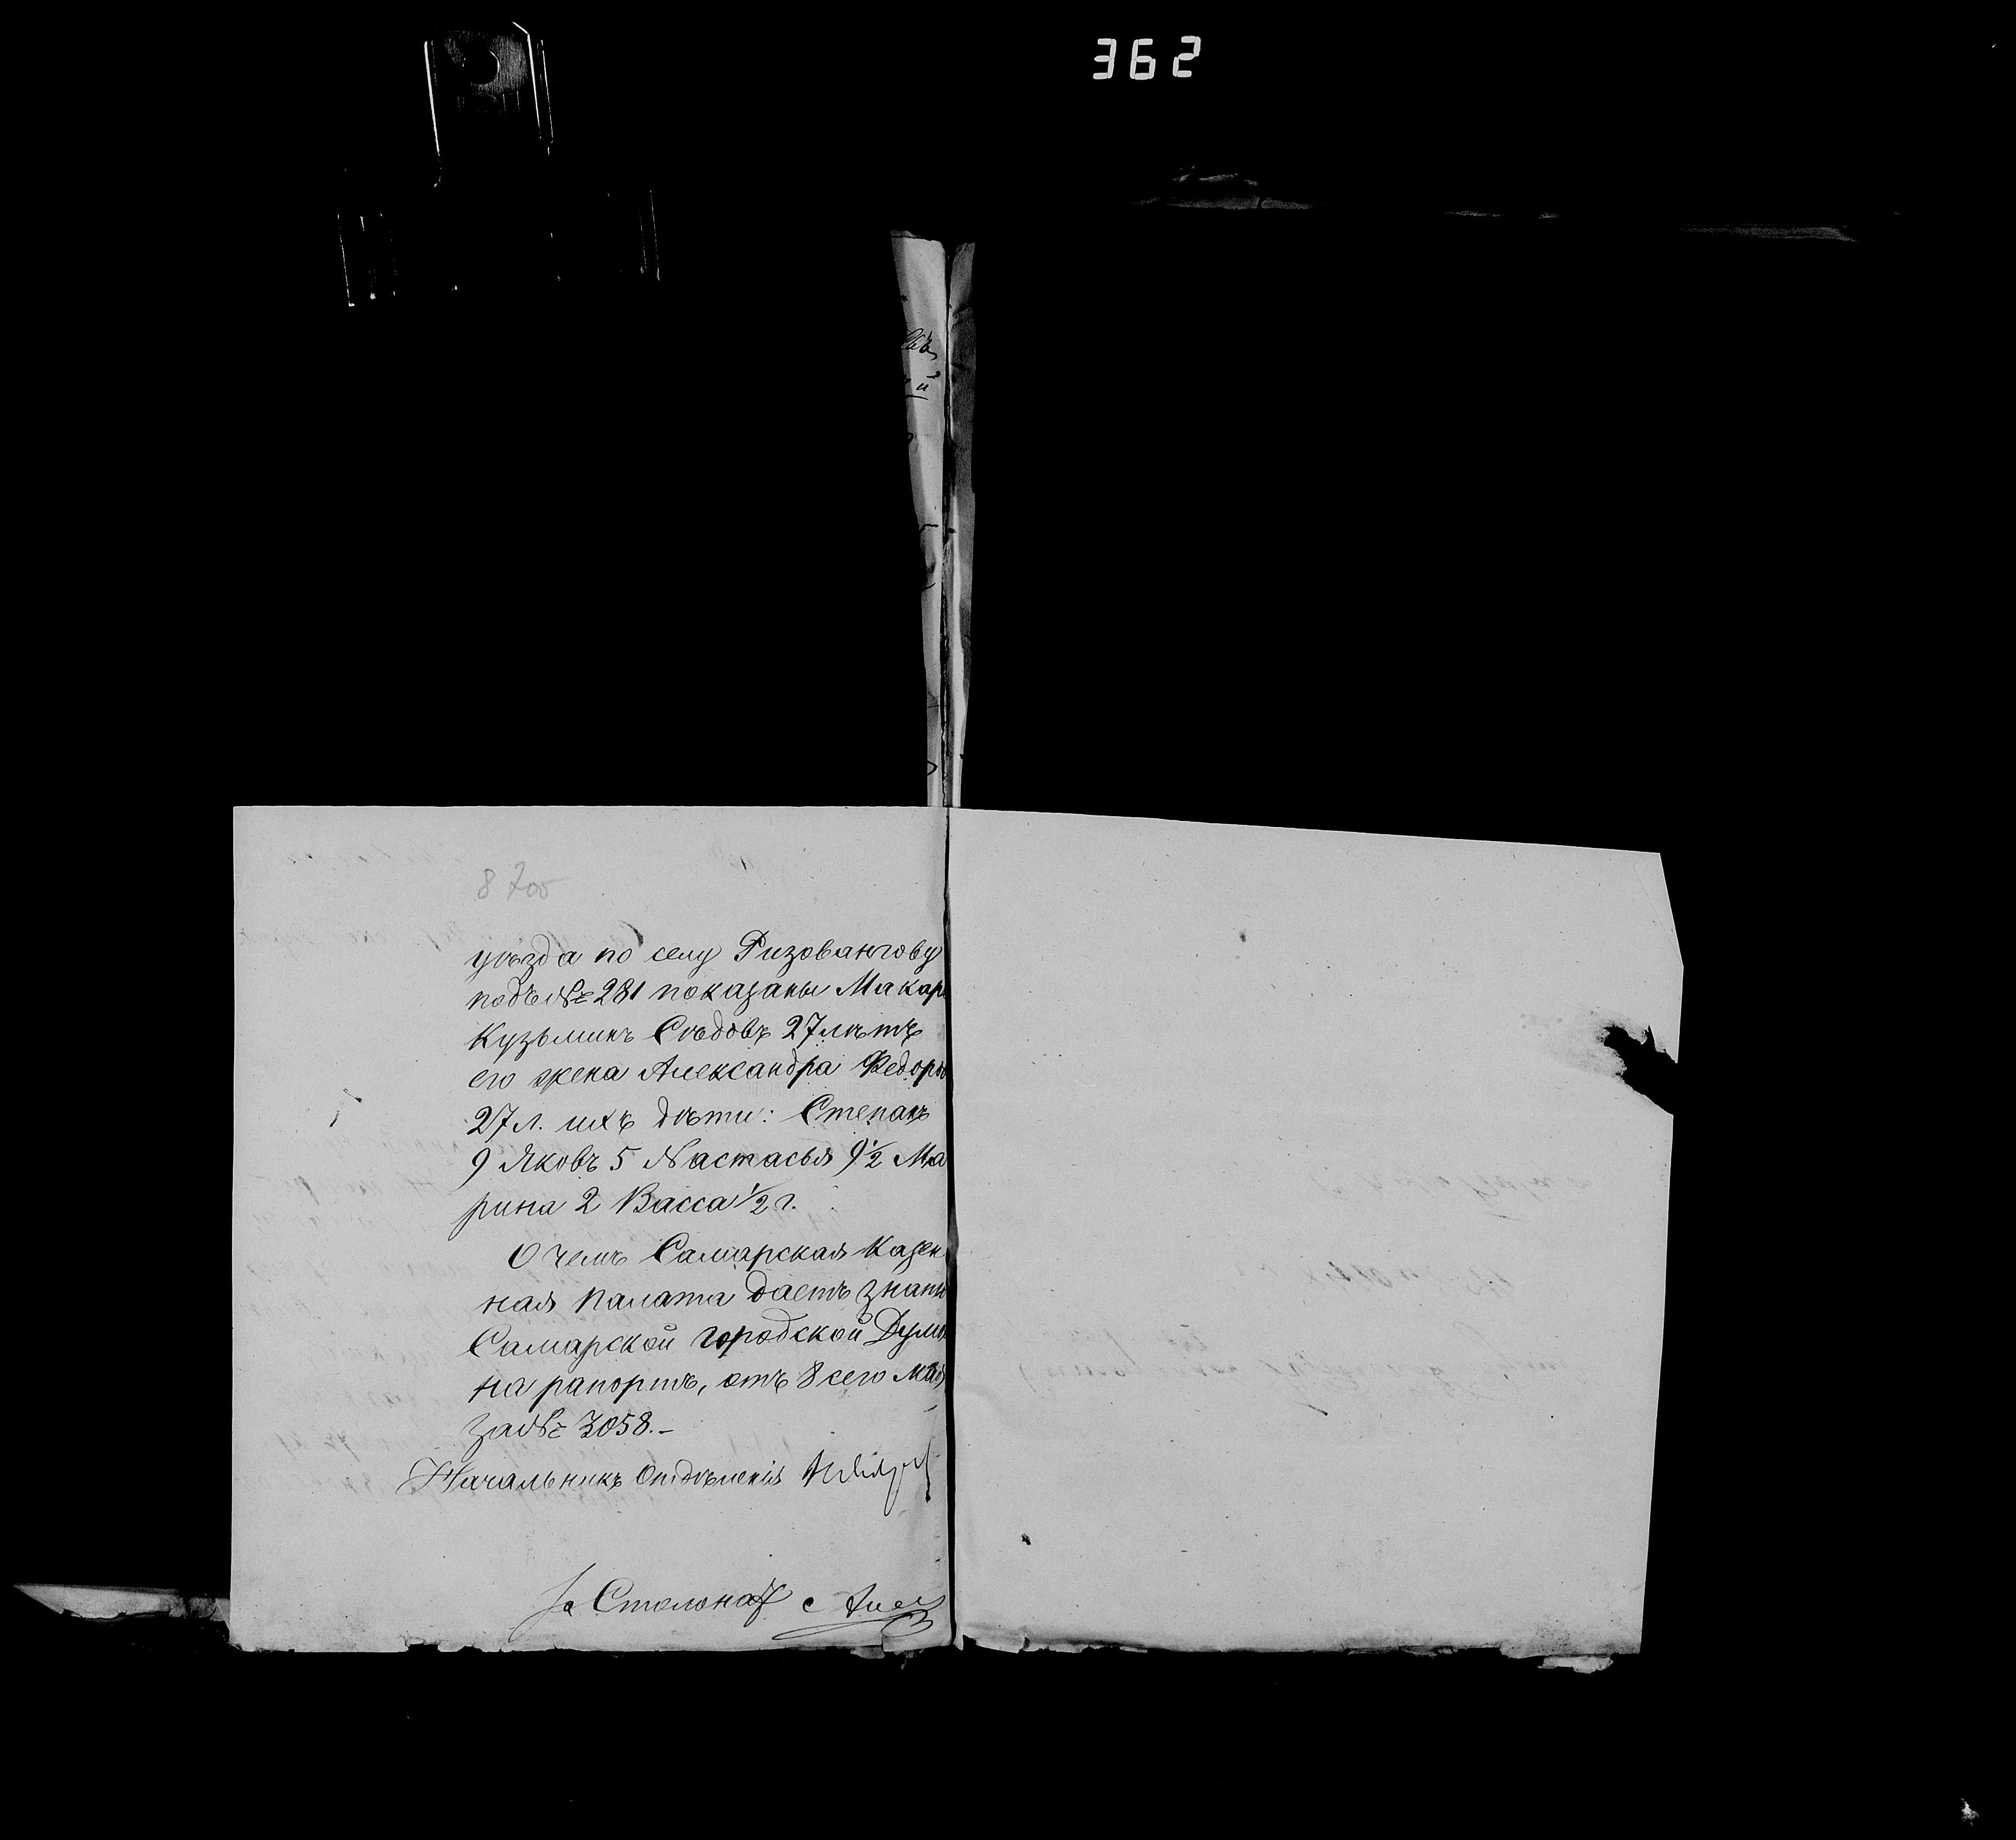 362
8 700
уѣзда по селу Ризоватову
подъ № 281 показаны Макаръ
Кузьминъ Сѣдовъ 27 лѣтъ
его жена Александра Федоро
27 л. ихъ дѣти: Степанъ
9 Яковъ 5 Настасья 9 1/2 Ма
рина 2 Васса 1/2 г.
О чемъ Самарская Казен
ная Палата даетъ знать
Самарской городской Думѣ
на рапортъ, отъ 8 сего Мая
за № 3058.-
Начальникъ Отдѣленія
За Столонач